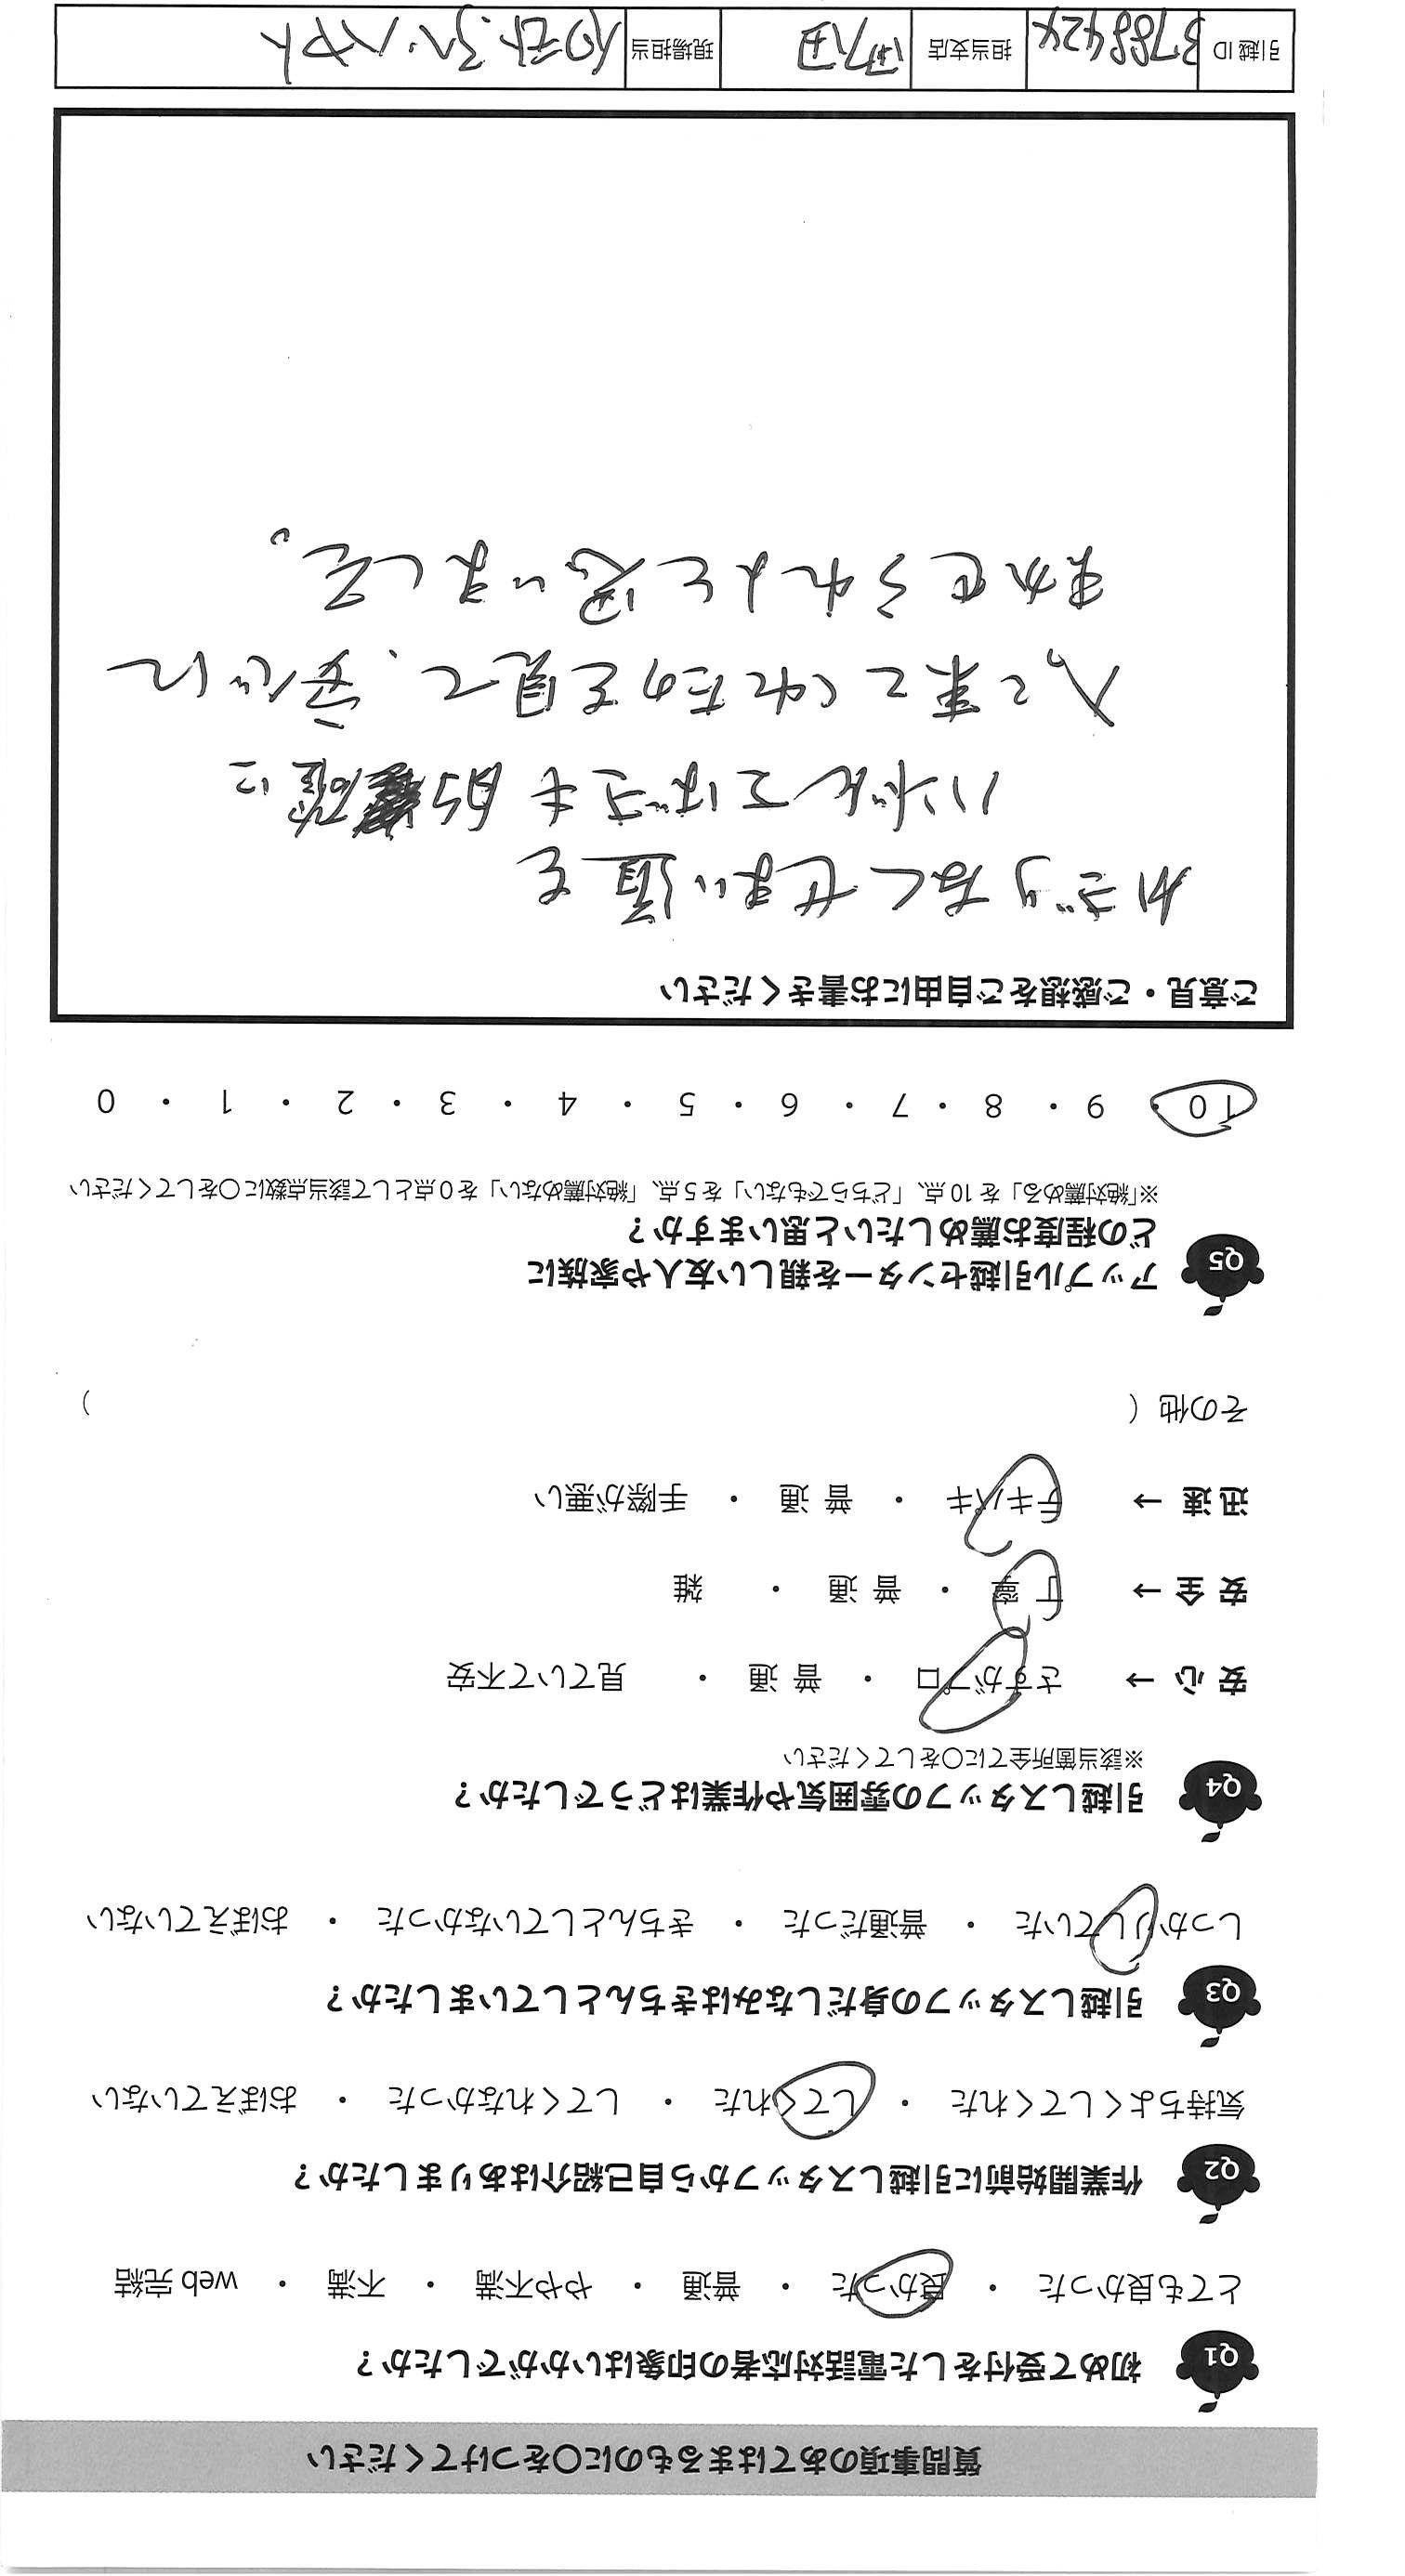 質問事項のあてはまるものに〇をつけてください
Q1 初めて受付をした電話対応者の印象はいかがでしたか？
とても良かった ・ 良かった ・ 普通 ・ やや不満 ・ 不満 ・ web 完結
Q2 作業開始前に引越しスタッフから自己紹介はありましたか？
気持ちよくしてくれた ・ してくれた ・ してくれなかった ・ おぼえていない
Q3 引越しスタッフの身だしなみはきちんとしていましたか？
しっかりしていた ・ 普通だった ・ きちんとしていなかった ・ おぼえていない
Q4 引越しスタッフの雰囲気や作業はどうでしたか？
※該当箇所全てに〇をしてください
安心 → さすがプロ ・ 普通 ・ 見ていて不安
安全 → 丁寧 ・ 普通 ・ 雑
迅速 → テキパキ ・ 普通 ・ 手際が悪い
その他（ ）
Q5 アップル引越センターを親しい友人や家族に
どの程度お薦めしたいと思いますか？
※「絶対薦める」を 10 点、「どちらでもない」を 5 点、「絶対薦めない」を 0 点として該当点数に〇をしてください
10 ・ 9 ・ 8 ・ 7 ・ 6 ・ 5 ・ 4 ・ 3 ・ 2 ・ 1 ・ 0
ご意見・ご感想をご自由にお書きください
かぎりなくせまい道を
ハンドルさばきも的確に
入って来てくれたのを見て、安心して
まかせられると思いました。
引越 ID 3788424 担当支店 現場担当